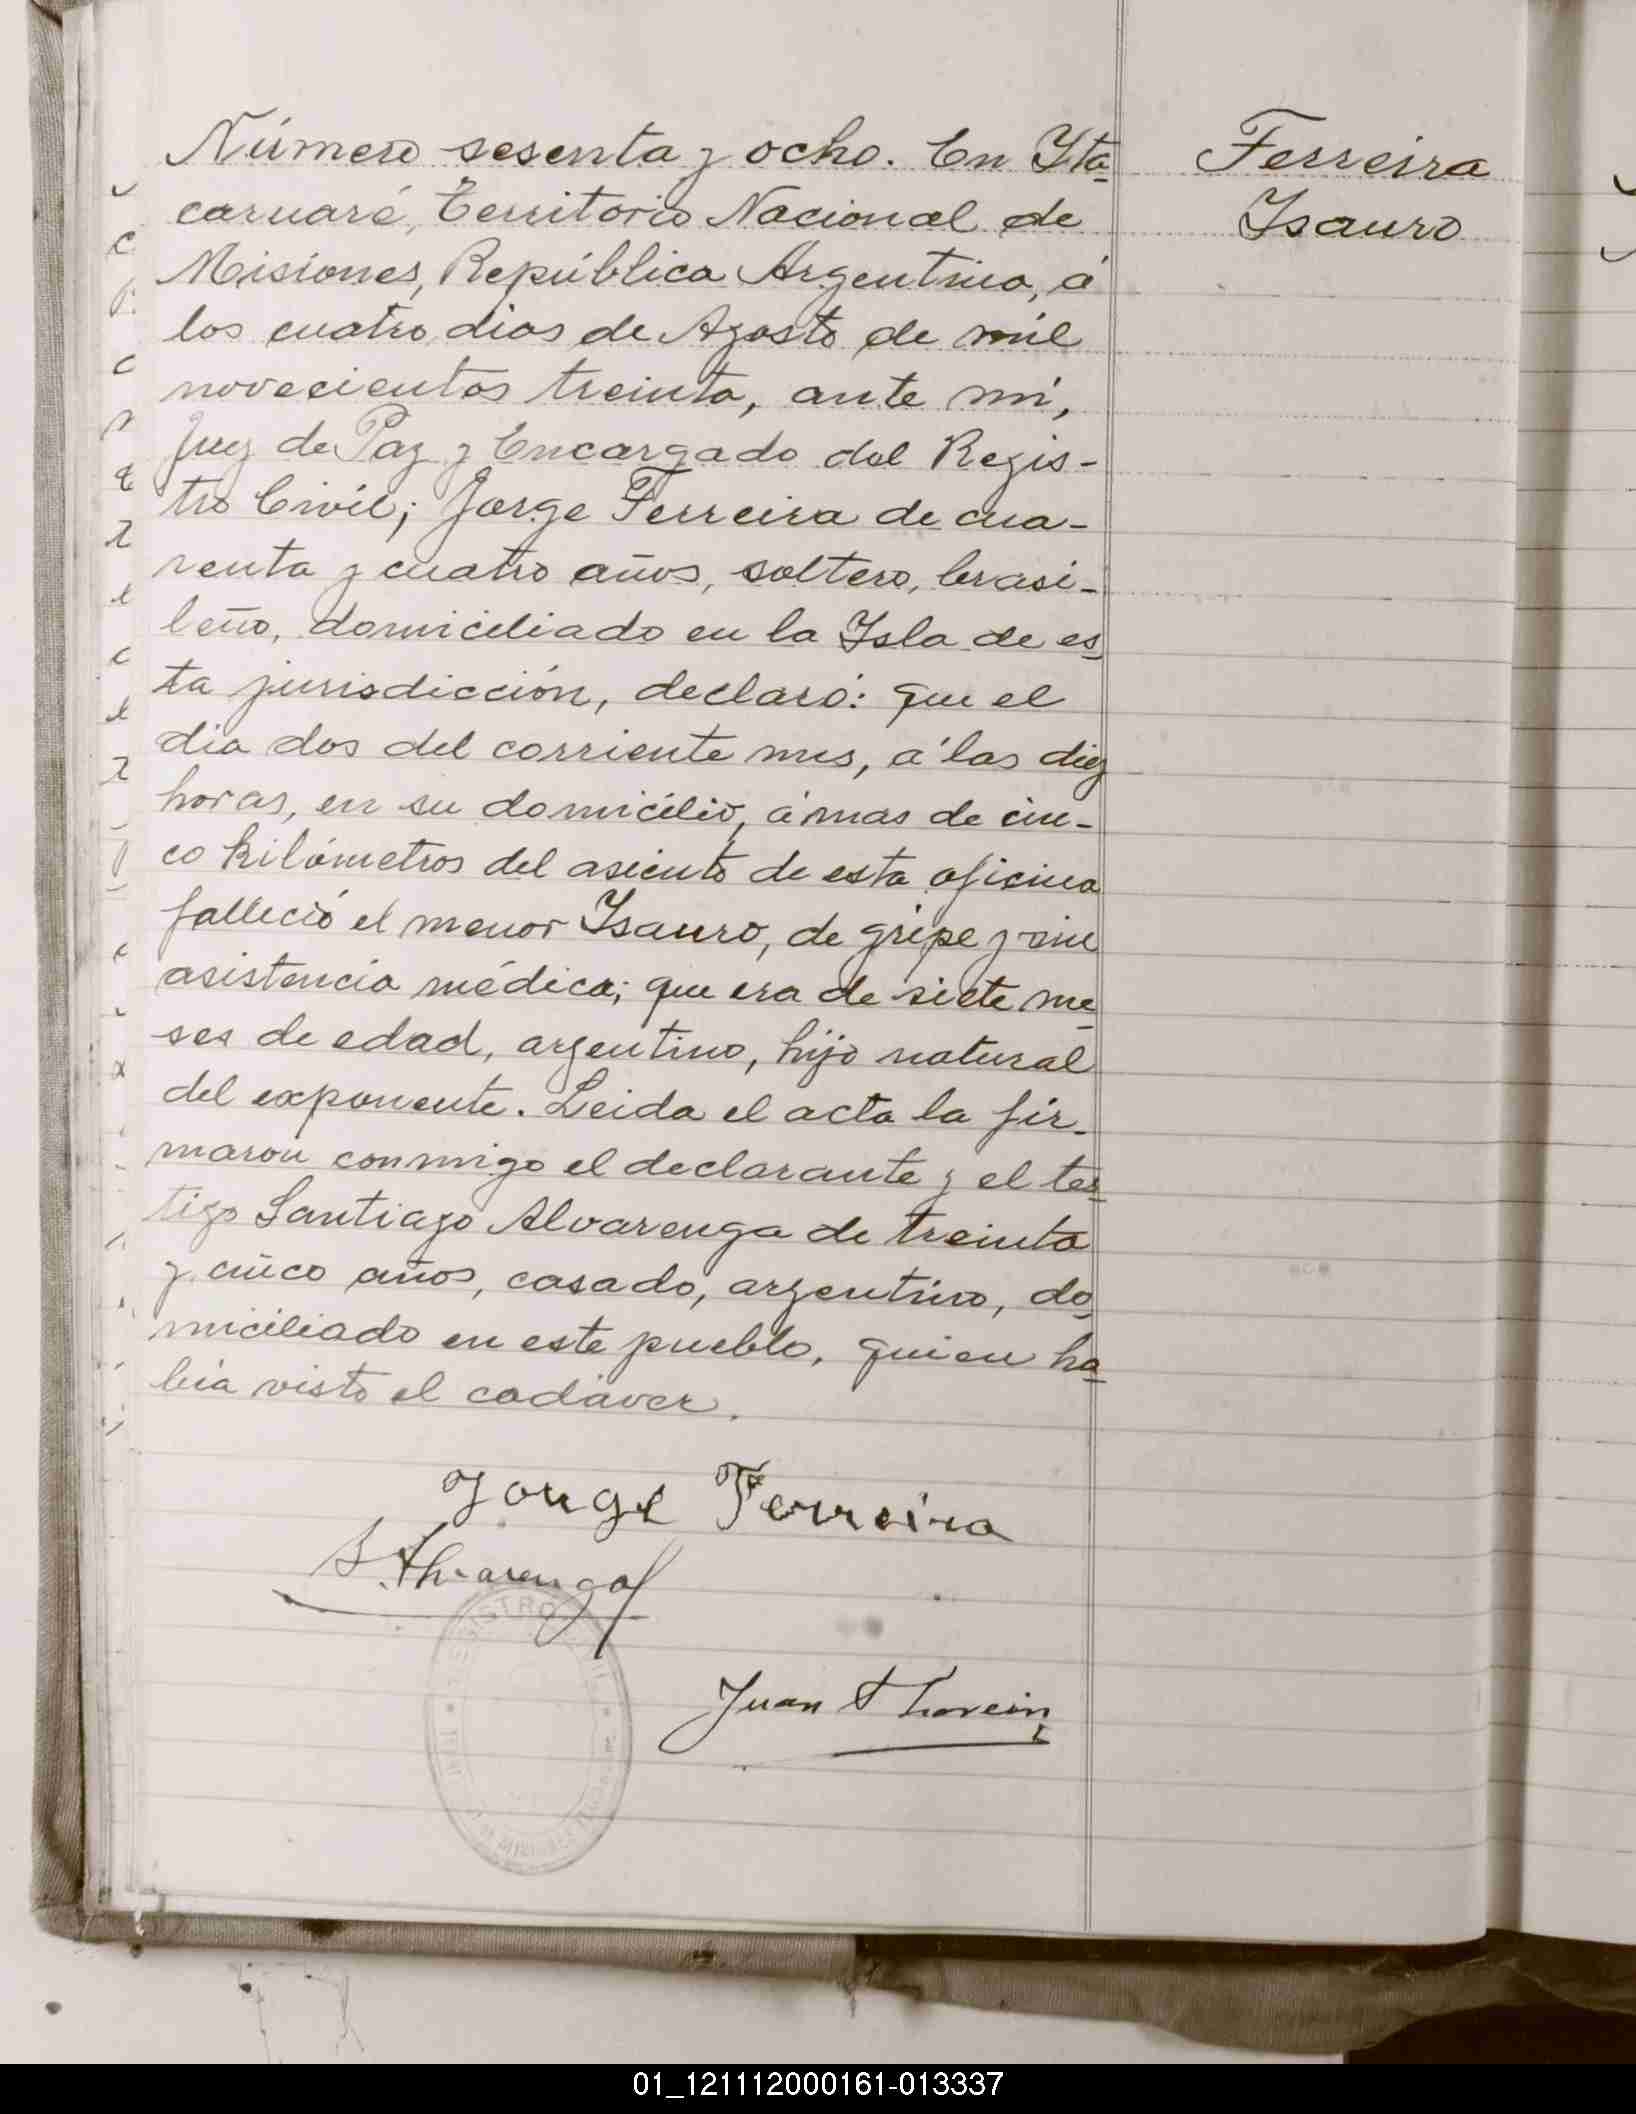 Número sesenta y ocho. En Ita-
caruaré, Territorio Nacional de
Misiones, República Argentina, á
los cuatro dias de Agosto de mil
novecientos treinta, ante mi,
Juez de Paz y Encargado del Regis-
tro Civil; Jorge Ferreira de cua-
renta y cuatro años, soltero, brasi-
leño, domiciliado en la Isla de es-
ta jurisdicción, declaró: que el
dia dos del corriente mes, á las diez
horas, en su domicilio, á mas de cin-
co kilómetros del asiento de esta oficina
falleció el menor Isauro, de gripe y sin
asistencia médica; que era de siete me-
ses de edad, argentino, hijo natural
del exponente. Leida el acta la fir-
maron conmigo el declarante y el tes-
tigo Santiago Alvarenga de treinta
y cinco años, casado, argentino, do-
miciliado en este pueblo, quien ha-
bia visto el cadáver.
Ferreira
Isauro
Jorge Ferreira
S. Alvarenga
Juan
REGISTRO
01_121112000161-013337